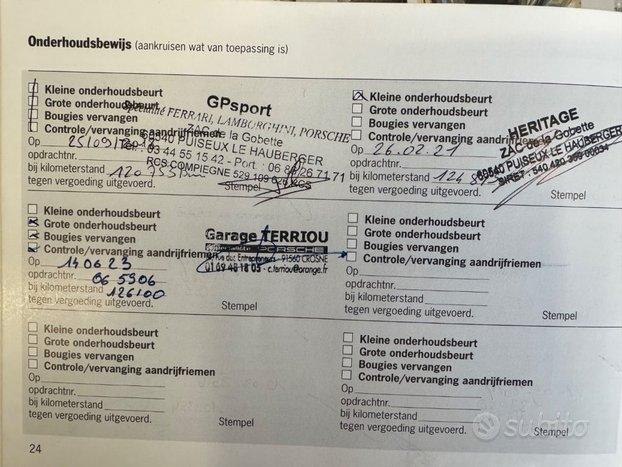 Onderhoudsbewijs (aankruisen wat van toepassing is)
Kleine onderhoudsbeurt
Grote onderhoudsbeurt
Bougies vervangen
Controle/vervanging aandrijfriemen
Op
opdrachtnr.
bij kilometerstand 120755
tegen vergoeding uitgevoerd.
Stempel
GPsport
Spécialité FERRARI, LAMBORGHINI, PORSCHE
ZAC de la Gobette
60540 PUISEUX LE HAUBERGER
Tél. : 03 44 55 15 42 - Port. : 06 86 26 71 71
RCS COMPIEGNE 529 109
Kleine onderhoudsbeurt
Grote onderhoudsbeurt
Bougies vervangen
Controle/vervanging aandrijfriemen
Op 26.02.21
opdrachtnr.
bij kilometerstand
tegen vergoeding uitgevoerd.
Stempel
HERITAGE
ZAC de la Gobette
60540 PUISEUX LE HAUBERGER
Kleine onderhoudsbeurt
Grote onderhoudsbeurt
Bougies vervangen
Controle/vervanging aandrijfriemen
Op 140623
opdrachtnr. 065906
bij kilometerstand 126100
tegen vergoeding uitgevoerd.
Stempel
Garage TERRIOU
PORSCHE
91560 CROSNE
01 09 48 18 05 - c.terriou@orange.fr
Kleine onderhoudsbeurt
Grote onderhoudsbeurt
Bougies vervangen
Controle/vervanging aandrijfriemen
Op
opdrachtnr.
bij kilometerstand
tegen vergoeding uitgevoerd.
Stempel
Kleine onderhoudsbeurt
Grote onderhoudsbeurt
Bougies vervangen
Controle/vervanging aandrijfriemen
Op
opdrachtnr.
bij kilometerstand
tegen vergoeding uitgevoerd.
Stempel
Kleine onderhoudsbeurt
Grote onderhoudsbeurt
Bougies vervangen
Controle/vervanging aandrijfriemen
Op
opdrachtnr.
bij kilometerstand
tegen vergoeding uitgevoerd.
Stempel
24
subito